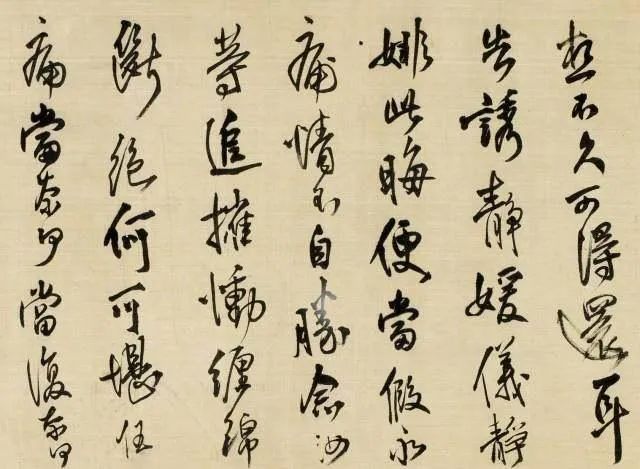 想不久可得還耳
告誘靜媛儀靜
此晦便當假永
痛情不自勝念汝
等追摧慟纏綿
斷絕何可堪任
痛當奈何當復奈何